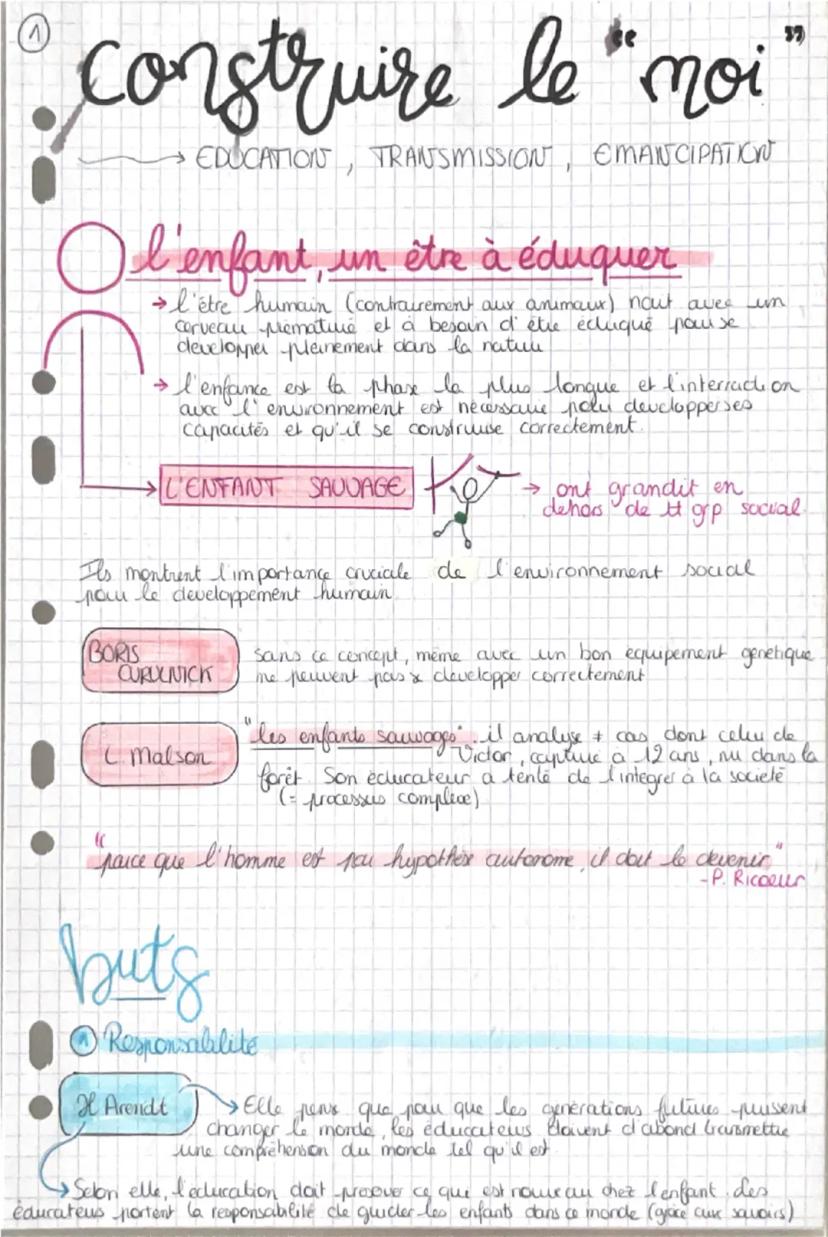 1
construire le "moi"
→ EDUCATION, TRANSMISSION, EMANCIPATION
l'enfant, un être à éduquer
→ l'être humain (contrairement aux animaux) nait avec un
cerveau prématuré et à besoin d'être éduqué pour se
developper pleinement dans la nature
→ l'enfance est la phase la plus longue et l'interraction
avec l'environnement est nécessaire pour developper ses
capacités et qu'il se construise correctement.
L'ENFANT SAUVAGE → ont grandit en
dehors de tt grp social
Ils montrent l'importance cruciale de l'environnement social
pour le developpement humain
BORIS
CURULNICK
sans ce concept, même avec un bon équipement génétique
ne peuvent pas se developper correctement
L Malson
"les enfants sauvages". il analyse + cas dont celui de
Victor, capturé à 12 ans, nu dans la
forêt. Son éducateur a tenté de l'integrer à la société
(= processus complexe)
"parce que l'homme est par hypothèse autonome, il doit le devenir"
-P. Ricoeur
buts
1 Responsabilité
H Arendt
→ Elle pense que pour que les générations futures puissent
changer le monde, les éducateurs doivent d'abord transmettre
une compréhension du monde tel qu'il est.
→ Selon elle, l'éducation doit ce que est nouveau chez l'enfant. des
éducateurs portent la responsabilité de guider les enfants dans ce monde (grâce aux savoirs)